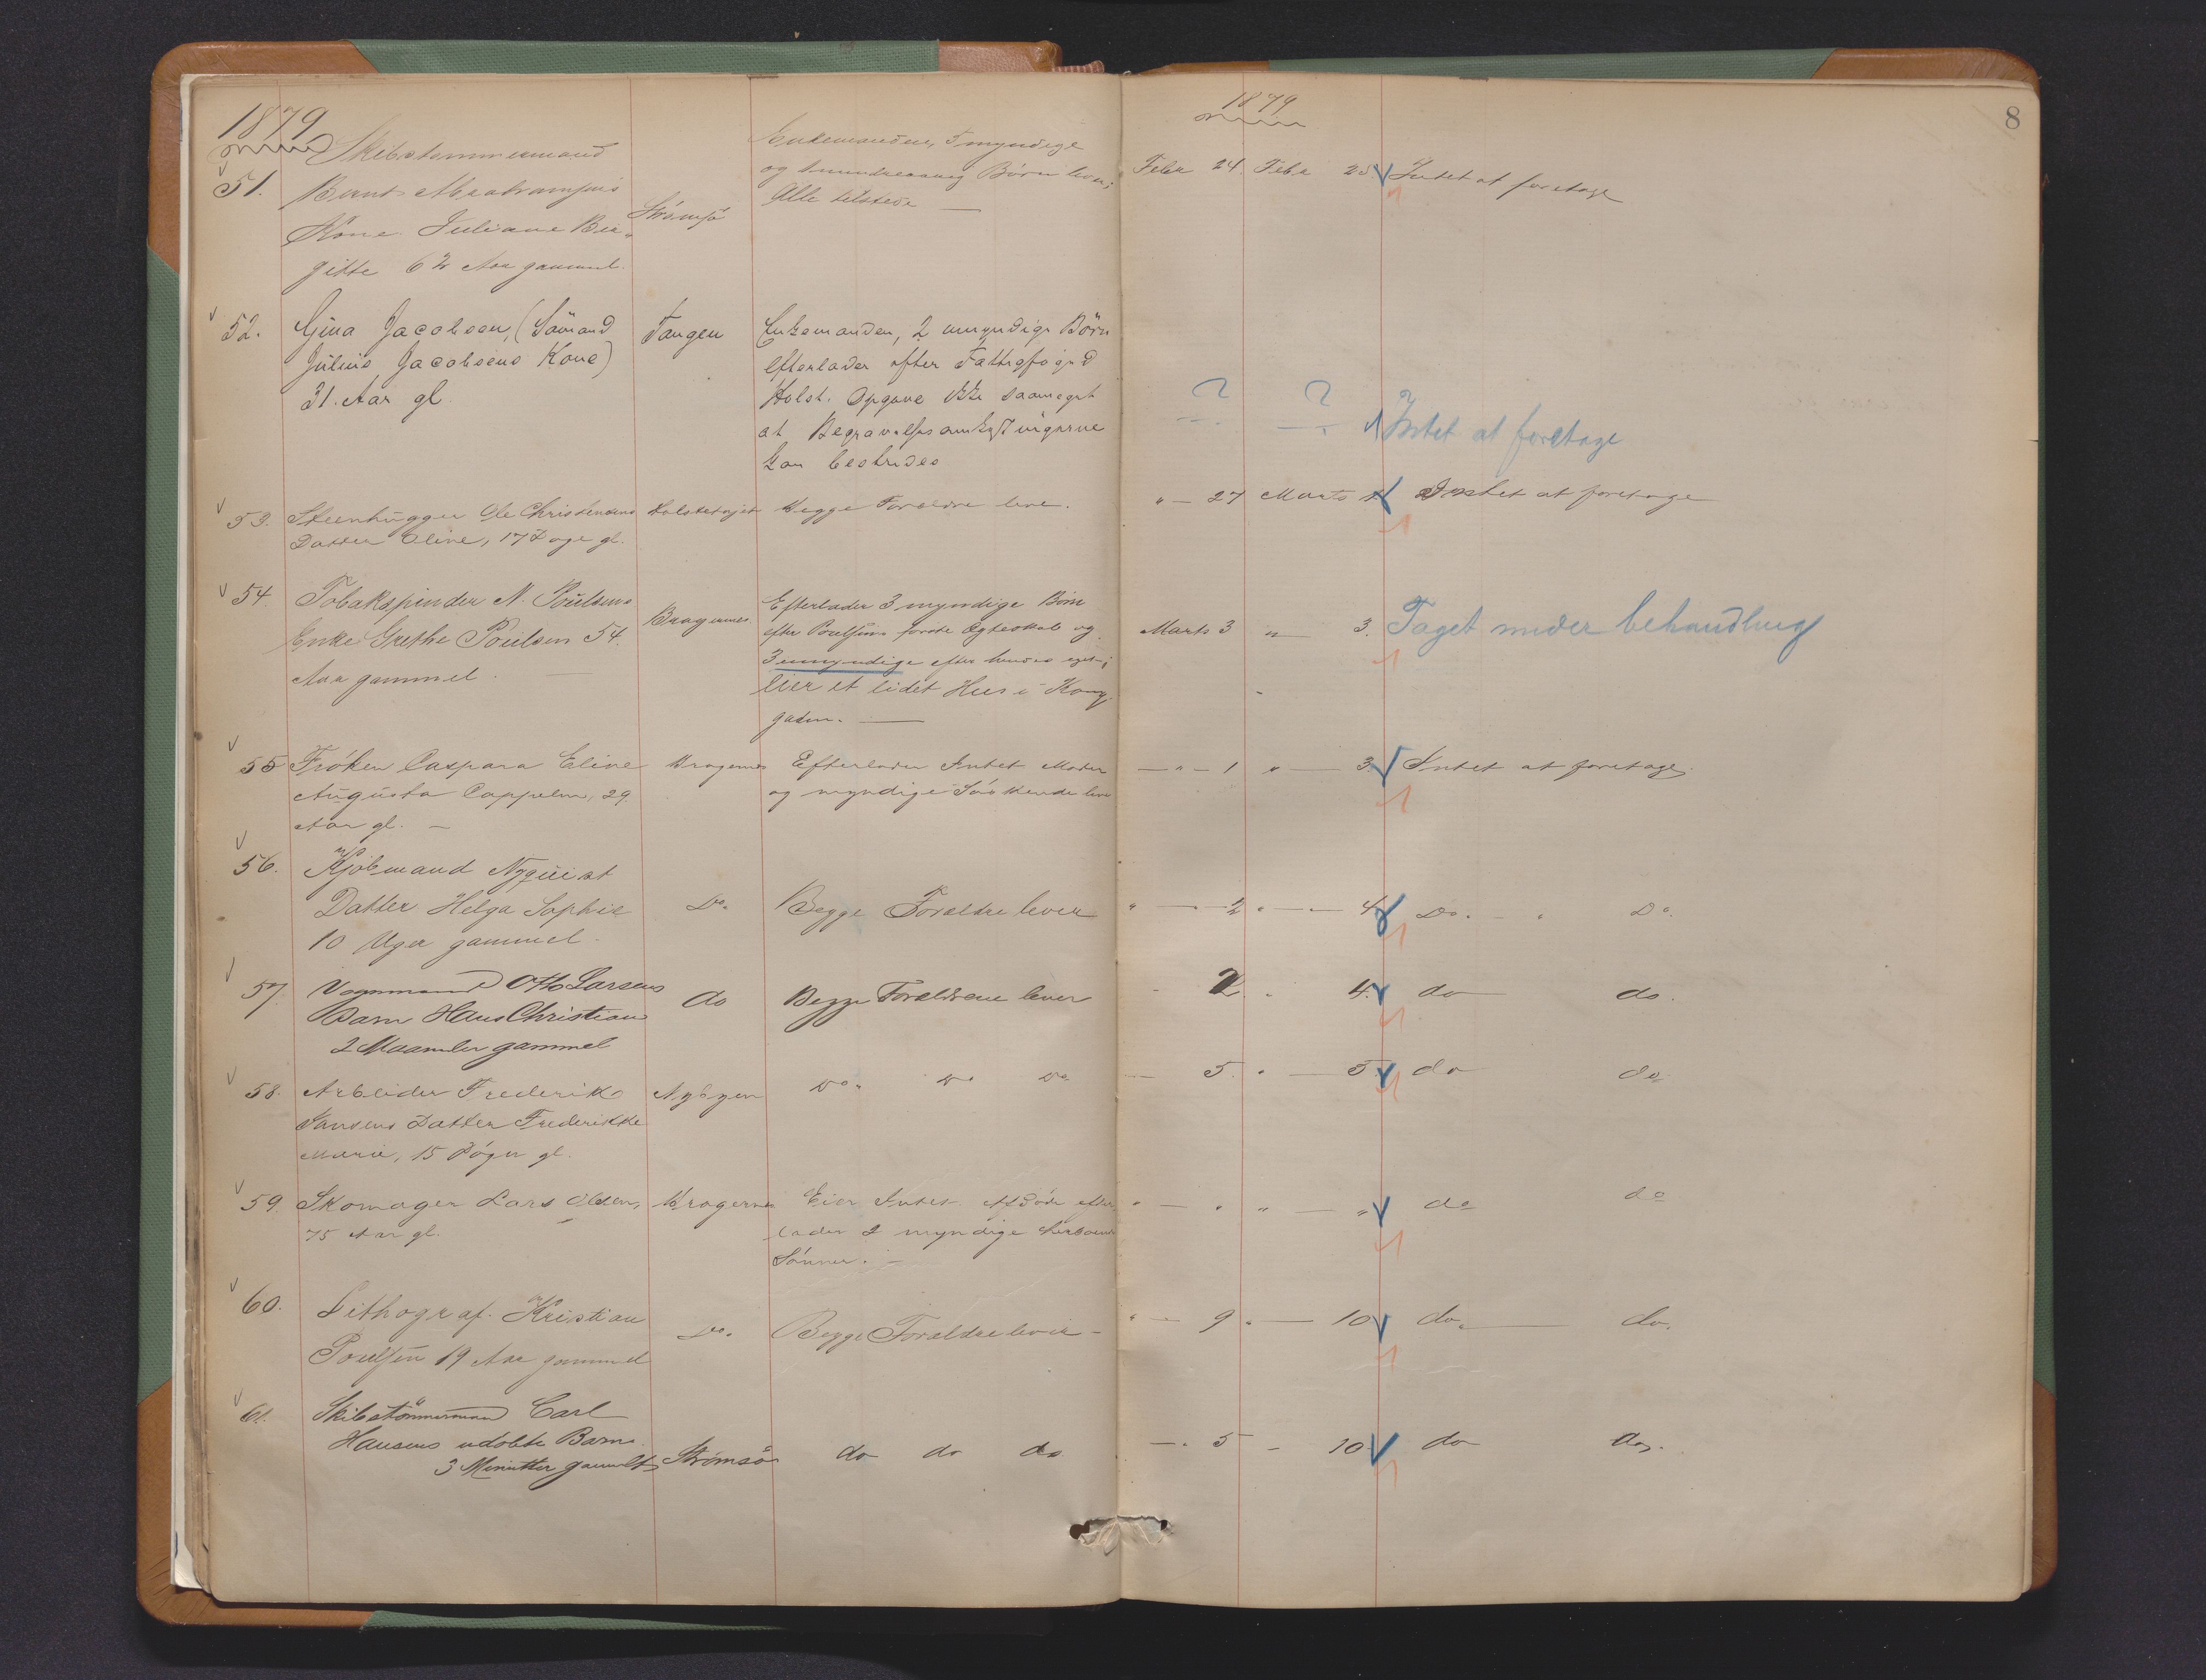 1879
1879
8
51.
Skibstømmermand
Bernt Abrahamsens
Kone Juliane Bir-
gitte 62 Aar gammel.
Strømsø
Enkemanden, myndige
og Børn lever;
Alle tilstede —
Febr 24. Febr 25 Intet at foretage
52.
Gina Jacobsen, (Sømand
Julius Jacobsens Kone)
31. Aar gl.
Tangen
Enkemanden, 2 umyndige Børn
Efterlader efter Fattigfogd
Holst. Opgave ikke saameget
at Begravelsesomkostningerne
kan bestrides
? ? Intet at foretage
53.
Steenhugger Ole Christensens
Datter Oline, 17 Dage gl.
Begge Forældre leve.
" — 27 Marts 1 Intet at foretage
54.
Tobakspinder N. Poulsens
Enke Grethe Poulsen 54.
Aar gammel. —
Bragernes
Efterlader 3 myndige Børn
efter Poulsens første Egteskab og
3 umyndige efter hendes eget;
Eier et lidet Hus i Kong.
gaden. —
Marts 3 " 3. Taget under behandling
55
Frøken Caspara Eline
Augusta Cappelen, 29.
Aar gl. —
Bragernes
Efterlader Intet Moder
og myndige Søskende leve
— " — 1 " — 3. Intet at foretage
56.
Kjøbmand Nyquist
Datter Helga Sophie
10 Uger gammel.
Do.
Begge Forældre lever
" — 2 " — 4. Do. — " Do.
57.
Vognmand Otto Larsens
Barn Hans Christian
2 Maaneder gammel
do
Begge Forældrene lever
- 2. 4. do do.
58.
Arbeider Frederik
Jansens Datter Frederikke
Marie, 15 Døgn gl.
Nybyen
Do. Do Do.
— 5. " — 5. do do.
59.
Skomager Lars Olsen,
75 Aar gl.
Bragernes
Eier Intet Afdøde efter-
lader 2 myndige
Sønner. —
" — " " — " do do
60.
Lithograf. Kristian
Poulsen 19 Aar gammel
Do.
Begge Forældre lever —
" — 9 " — 10 do. — do.
61.
Skibstømmermand Carl
Hansens udøbte Barn.
3 Minutter gammelt
Strømsø
do do do
— " 5 — 10 do do.